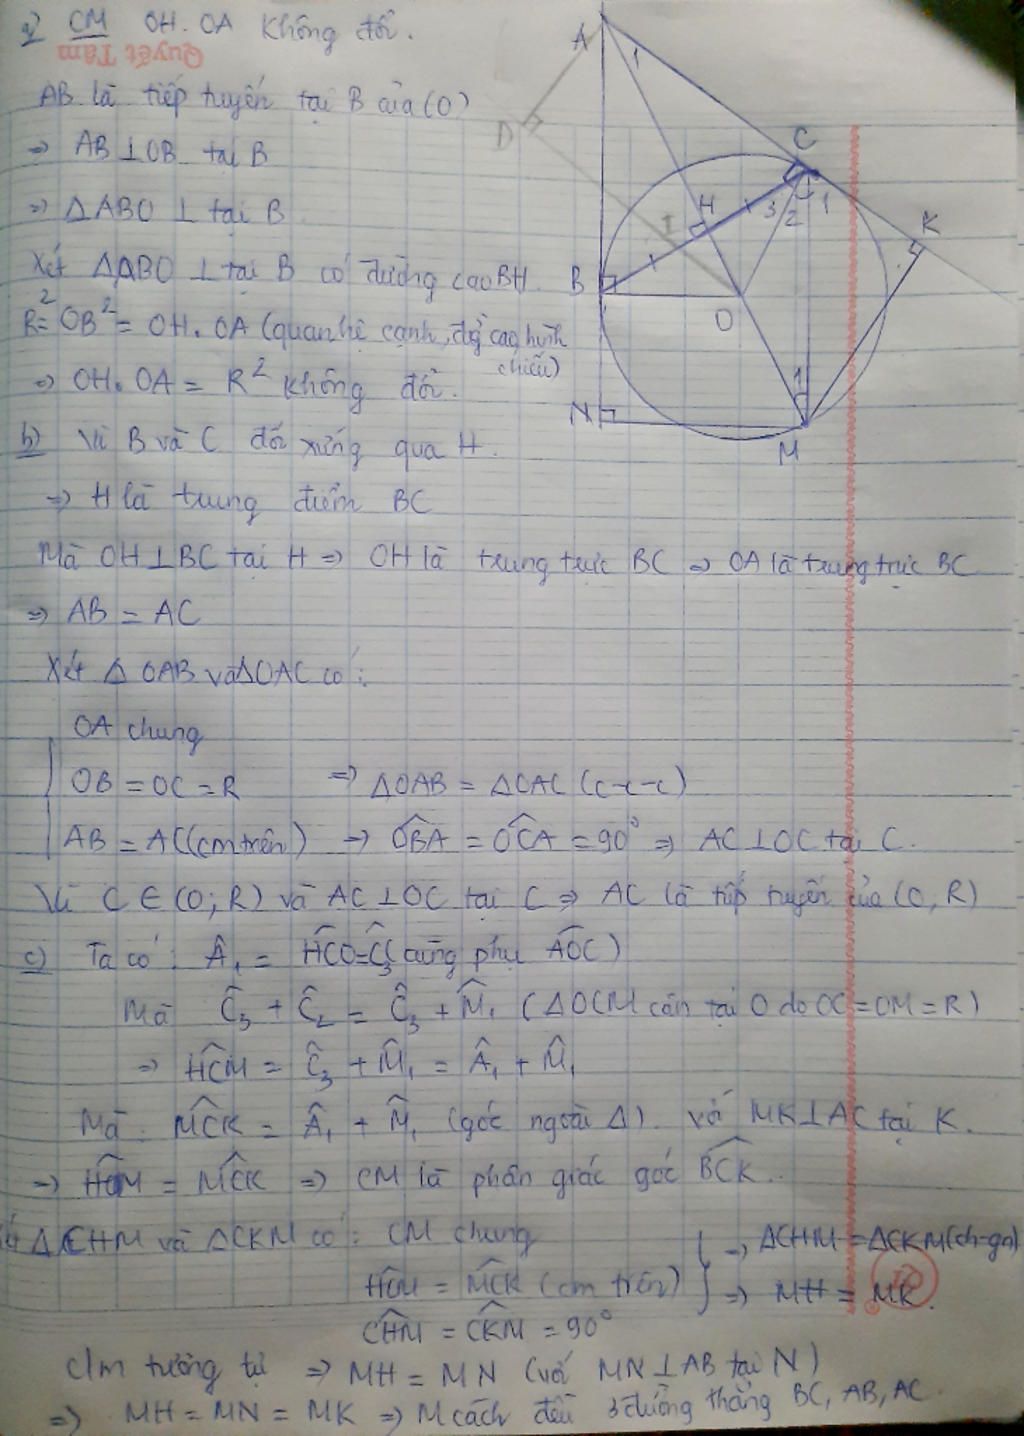 a) CM OH.OA không đổi.
Quyết Tâm
AB là tiếp tuyến tại B của (O)
=> AB ⊥ OB tại B
=> ΔABO ⊥ tại B
Xét ΔABO ⊥ tại B có đường cao BH.
R² = OB² = OH.OA (quan hệ cạnh, đg cao, hình chiếu)
=> OH.OA = R² không đổi.
b) Vì B và C đối xứng qua H.
=> H là trung điểm BC
Mà OH ⊥ BC tại H => OH là trung trực BC => OA là trung trực BC
=> AB = AC
Xét Δ OAB và ΔOAC có:
OA chung
OB = OC = R => ΔOAB = ΔOAC (c-c-c)
AB = AC (cm trên) => OBA = OCA = 90° => AC ⊥ OC tại C.
Vì C ∈ (O; R) và AC ⊥ OC tại C => AC là tiếp tuyến của (O, R)
c) Ta có: Â₁ = HCO = Ĉ₃ (cùng phụ AOC)
Mà Ĉ₃ + Ĉ₂ = Ĉ₃ + M̂₁ (ΔOCM cân tại O do OC = OM = R)
=> HCM = Ĉ₃ + M̂₁ = Â₁ + M̂₁
Mà: MCK = Â₁ + M̂₁ (góc ngoài Δ). với MK ⊥ AC tại K.
=> HCM = MCK => CM là phân giác góc BCK.
ΔCHM và ΔCKM có: CM chung
HCM = MCK (cm trên)
CHM = CKM = 90°
=> ΔCHM = ΔCKM (ch-gn)
=> MH = MK.
c/m tương tự => MH = MN (với MN ⊥ AB tại N)
=> MH = MN = MK => M cách đều 3 đường thẳng BC, AB, AC
A
1
D
C
I
H
3
2
1
K
B
O
1
N
M